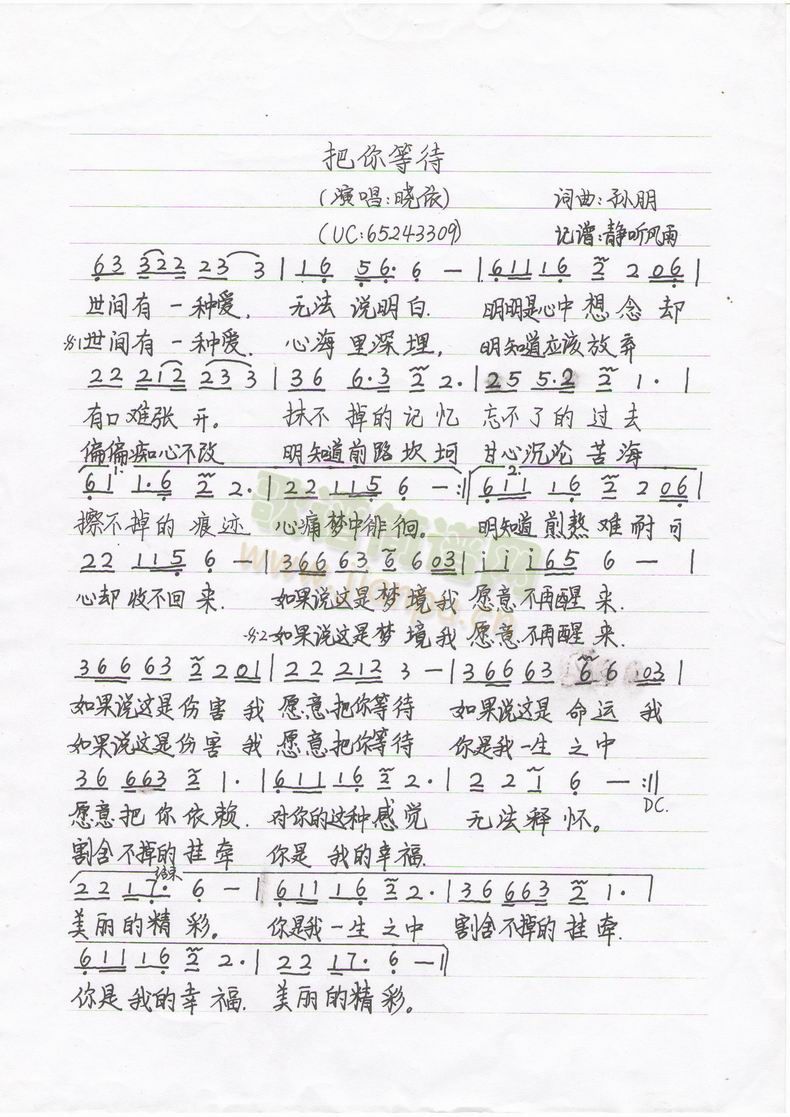 把你等待
(演唱:晓依) 词曲:孙朋
(UC:65243309) 记谱:静听风雨
63 322 23 3 | 16 56· 6 — | 61116 2 2 06 |
世间有一种爱, 无法说明白. 明明是心中想念却
世间有一种爱. 心海里深埋, 明知道应该放弃
22 212 23 3 | 36 6·3 2 2· | 25 5·2 2 1· |
有口难张开。 抹不掉的记忆 忘不了的过去
偏偏痴心不改 明知道前路坎坷 甘心沉沦苦海
1.
2.
61 1·6 2 2· | 22 115 6 — :‖ 611 16 2 2 06 |
擦不掉的痕迹 心痛梦中徘徊。 明知道煎熬难耐可
22 115 6 — | 366 63 6 6 03 | i i i65 6 — |
心却收不回来. 如果说这是梦境我愿意不再醒来.
如果说这是梦境我愿意不再醒来.
366 63 2 2 01 | 22 212 3 — | 366 63 6 6 03 |
如果说这是伤害我愿意把你等待 如果说这是命运我
如果说这是伤害我愿意把你等待 你是我一生之中
36 663 2 1· | 611 16 2 2· | 2 2 1 6 — :‖
D.C.
愿意把你依赖. 对你的这种感觉 无法释怀。
割舍不掉的挂牵 你是我的幸福.
结束
22 17· 6 — | 611 16 2 2· | 36 663 2 1· |
美丽的精彩。 你是我一生之中 割舍不掉的挂牵.
611 16 2 2· | 22 17· 6 — ‖
你是我的幸福. 美丽的精彩。
歌谱简谱网
www.jianpu.cn